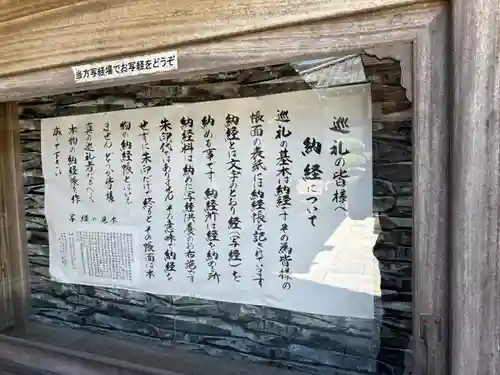 当方写経場でお写経をどうぞ
巡礼の皆様へ
納経について
巡礼の基本は納経です その為皆様の
帳面の表紙には納経帳と記されています
納経とは文字のとおり経（写経）を
納める事です 納経所は経を納める所
納経料は納めた写経供養のお布施です
朱印代はありません その意味で納経を
せずに朱印だけで終るとその帳面は本
物の納経帳とはいえ
ません どうか皆様
真の巡礼者になって
本物の納経帳を作
成して下さい
写経の見本